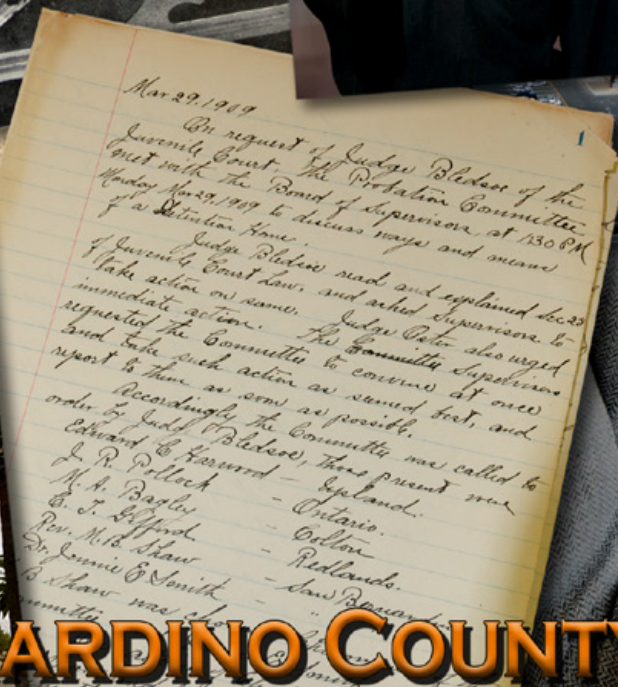 Mar 29, 1909
1
On request of Judge Bledsoe of the
Juvenile Court, the Probation Committee
met with the Board of Supervisors, at 1:30 PM
Monday Mar 29, 1909 to discuss ways and means
of a Detention Home.
Judge Bledsoe read and explained Sec 23
of Juvenile Court Law, and asked Supervisors to
take action on same. Judge Oster also urged
immediate action. The Committee Supervisors
requested the Committee to convene at once
and take such action as seemed best, and
report to them as soon as possible.
Accordingly the Committee was called to
order by Judge Bledsoe, those present were
Edward C Harwood - Upland.
J. R. Pollock - Ontario.
M. A. Bagley - Colton
E. T. Gifford - Redlands.
Rev. M. B. Shaw - San
Dr. Jennie E Smith - "
B Shaw was
ARDINO COUNTY